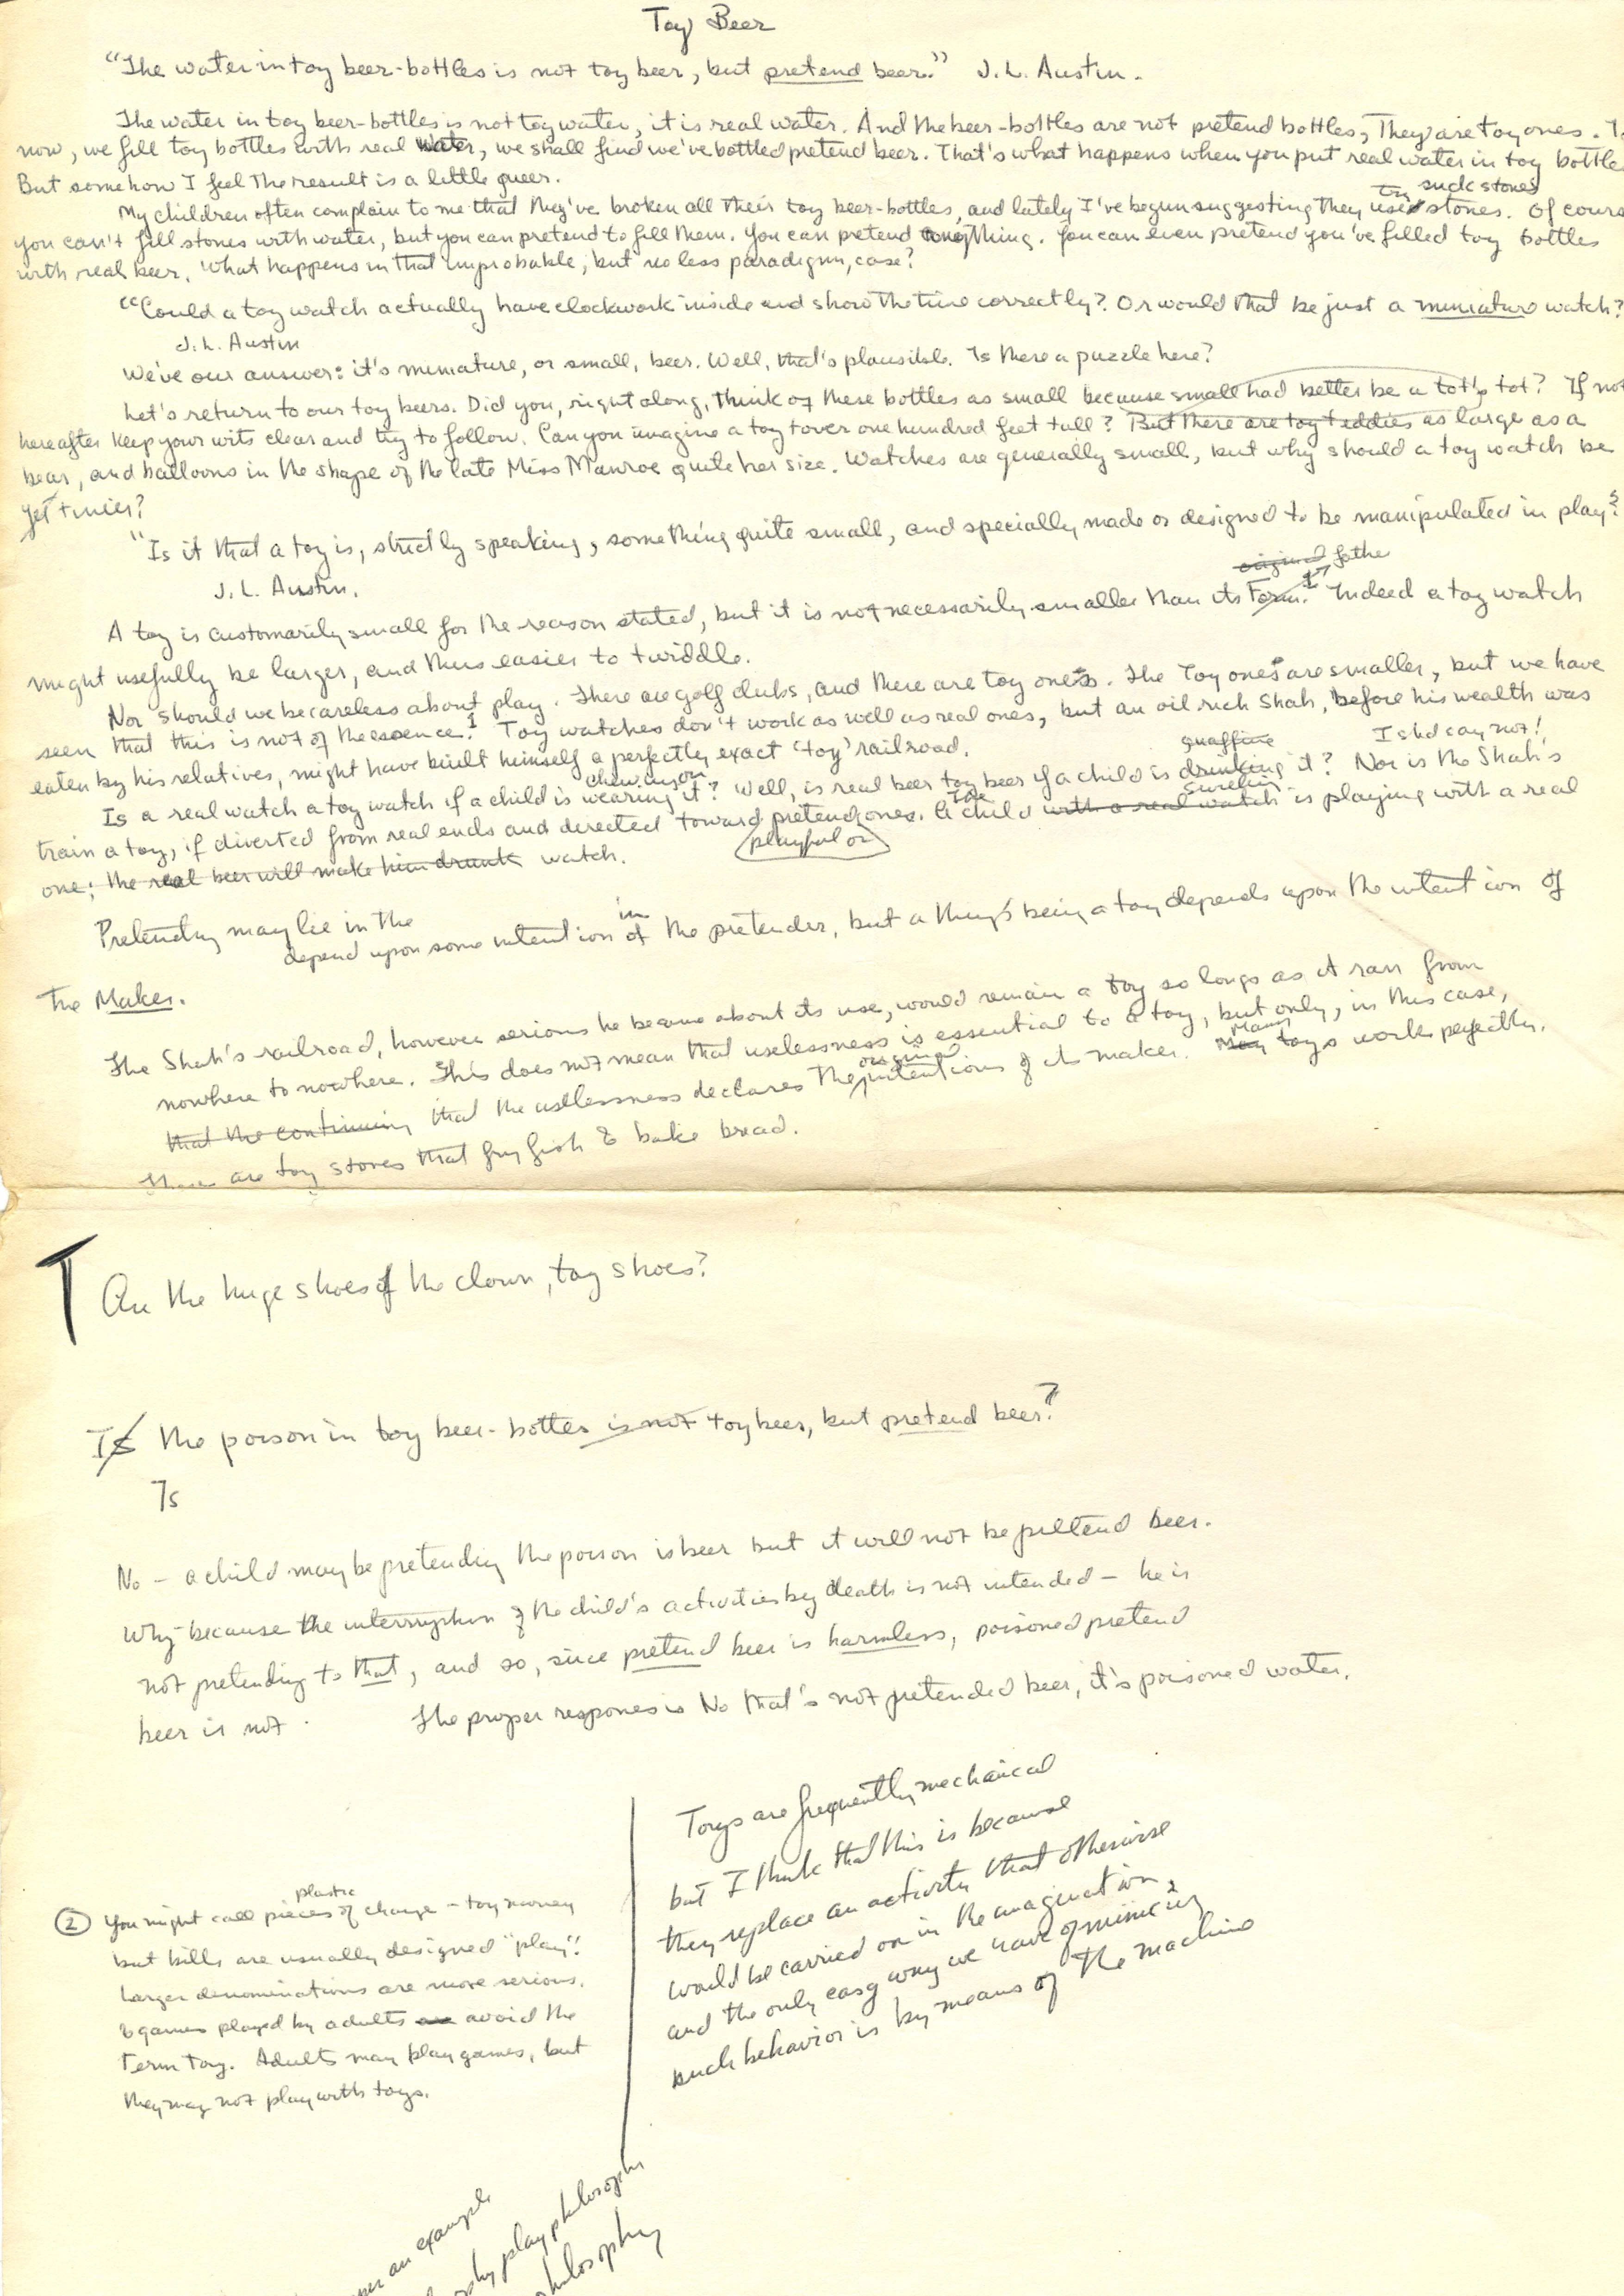 Toy Beer
"The water in toy beer-bottles is not toy beer, but pretend beer." J. L. Austin.
The water in toy beer-bottles is not toy water, it is real water. And the beer-bottles are not pretend bottles, They are toy ones.
now, we fill toy bottles with real water, we shall find we've bottled pretend beer. That's what happens when you put real water in toy bottle
But somehow I feel the result is a little queer.
try suck stones
My children often complain to me that they've broken all their toy beer-bottles, and lately I've begun suggesting they use stones. Of cours
you can't fill stones with water, but you can pretend to fill them. You can pretend anything. You can even pretend you've filled toy bottles
with real beer. What happens in that improbable, but no less paradigm, case?
"Could a toy watch actually have clockwork inside and show the time correctly? Or would that be just a miniature watch?
J. L. Austin
We've our answer: it's miniature, or small, beer. Well, that's plausible. Is there a puzzle here?
Let's return to our toy beers. Did you, right along, think of these bottles as small because small had better be a tot's tot? If not
hereafter keep your wits clear and try to follow. Can you imagine a toy tower one hundred feet tall? But there are toy teddies as large as a
bear, and balloons in the shape of the late Miss Monroe quite her size. Watches are generally small, but why should a toy watch be
yet tinier?
"Is it that a toy is, strictly speaking, something quite small, and specially made or designed to be manipulated in play?"
J. L. Austin.
original father
A toy is customarily small for the reason stated, but it is not necessarily smaller than its Form. Indeed a toy watch
might usefully be larger, and thus easier to twiddle.
Nor should we be careless about play. There are golf clubs, and there are toy ones. The toy ones are smaller, but we have
seen that this is not of the essence. Toy watches don't work as well as real ones, but an oil rich Shah, before his wealth was
eaten by his relatives, might have built himself a perfectly exact 'toy' railroad.
chewing on
quaffing
I shd say not!
Is a real watch a toy watch if a child is wearing it? Well, is real beer toy beer if a child is drinking it? Nor is the Shah's
swilling
train a toy, if diverted from real ends and directed toward pretend ones. The child with a real watch is playing with a real
playful or
one; the real beer will make him drunk watch.
Pretending may lie in the
depend upon some intention in of the pretender, but a thing's being a toy depends upon the intention of
the Maker.
The Shah's railroad, however serious he became about its use, would remain a toy so longs as it ran from
nowhere to nowhere. This does not mean that uselessness is essential to a toy, but only, in this case,
that the continuing that the uselessness declares the original intentions of its maker. Many toys work perfectly.
There are toy stoves that fry fish & bake bread.
Are the huge shoes of the clown, toy shoes?
If the poison in toy beer-bottles is not toy beer, but pretend beer?
Is
No – a child may be pretending the poison is beer but it will not be pretend beer.
Why – because the interruption of the child's activities by death is not intended – he is
not pretending to that, and so, since pretend beer is harmless, poisoned pretend
beer is not. The proper respones is No that's not pretended beer, it's poisoned water.
Toys are frequently mechanical
but I think that this is because
they replace an activity that otherwise
would be carried on in the imagination,
and the only easy way we have of mimicing
such behavior is by means of the machine
plastic
② You might call pieces of change – toy money
but bills are usually designed "play".
Larger denominations are more serious.
& games played by adults avoid the
term toy. Adults may play games, but
they may not play with toys.
an example
play philosophy
philosophy